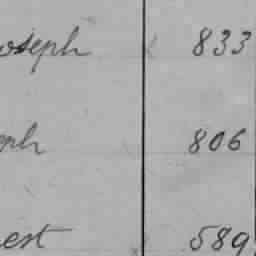 oseph 833
eph 806
est 589